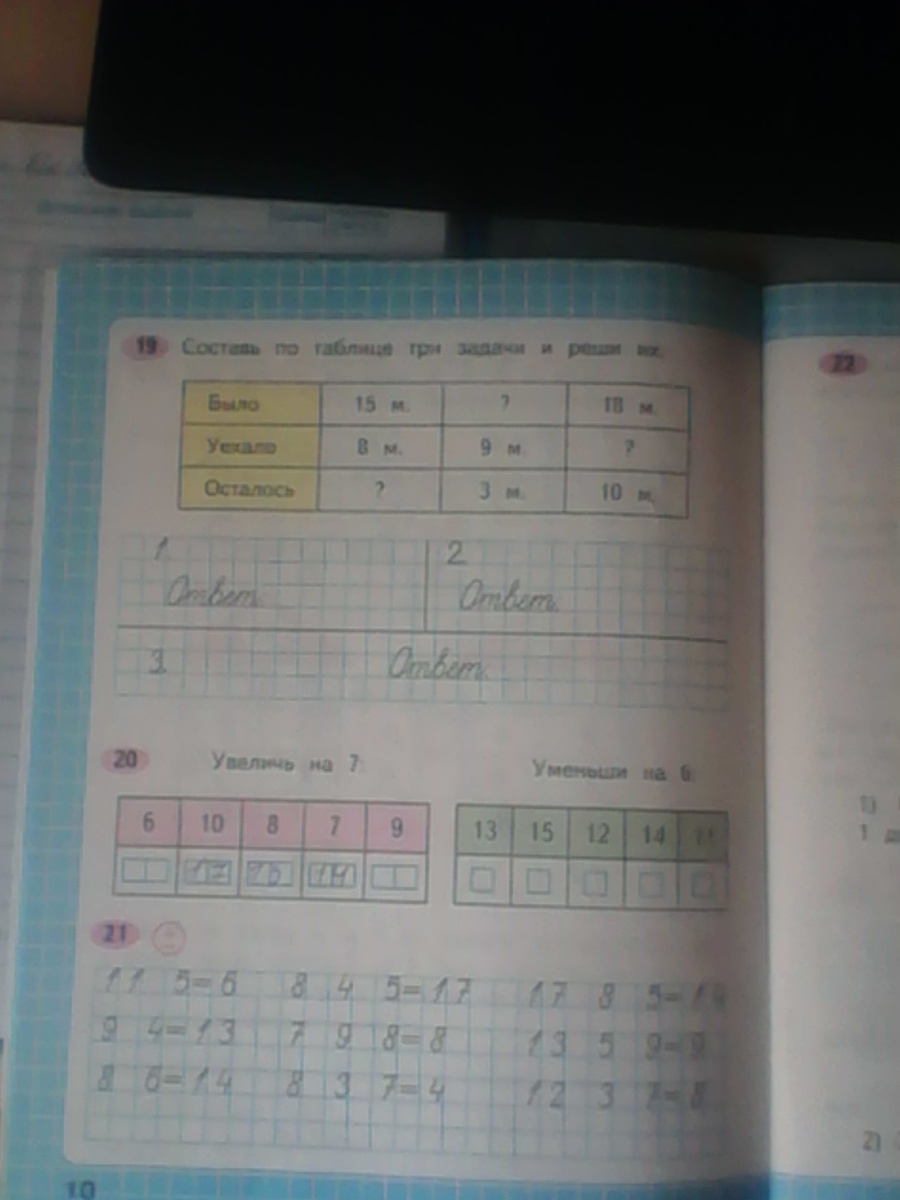 19 Составь по таблице три задачи и реши их.
Было 15 м. ? 18 м.
Уехало 8 м. 9 м. ?
Осталось ? 3 м. 10 м.
1. 2.
Ответ: Ответ:
3. Ответ:
20 Увеличь на 7: Уменьши на 6:
6 10 8 7 9 13 15 12 14 11
17 15 14
21 + −
11 5=6 8 4 5=17 17 8 5=14
9 4=13 7 9 8=8 13 5 9=9
8 6=14 8 3 7=4 12 3 7=8
10
22
1)
1
2)